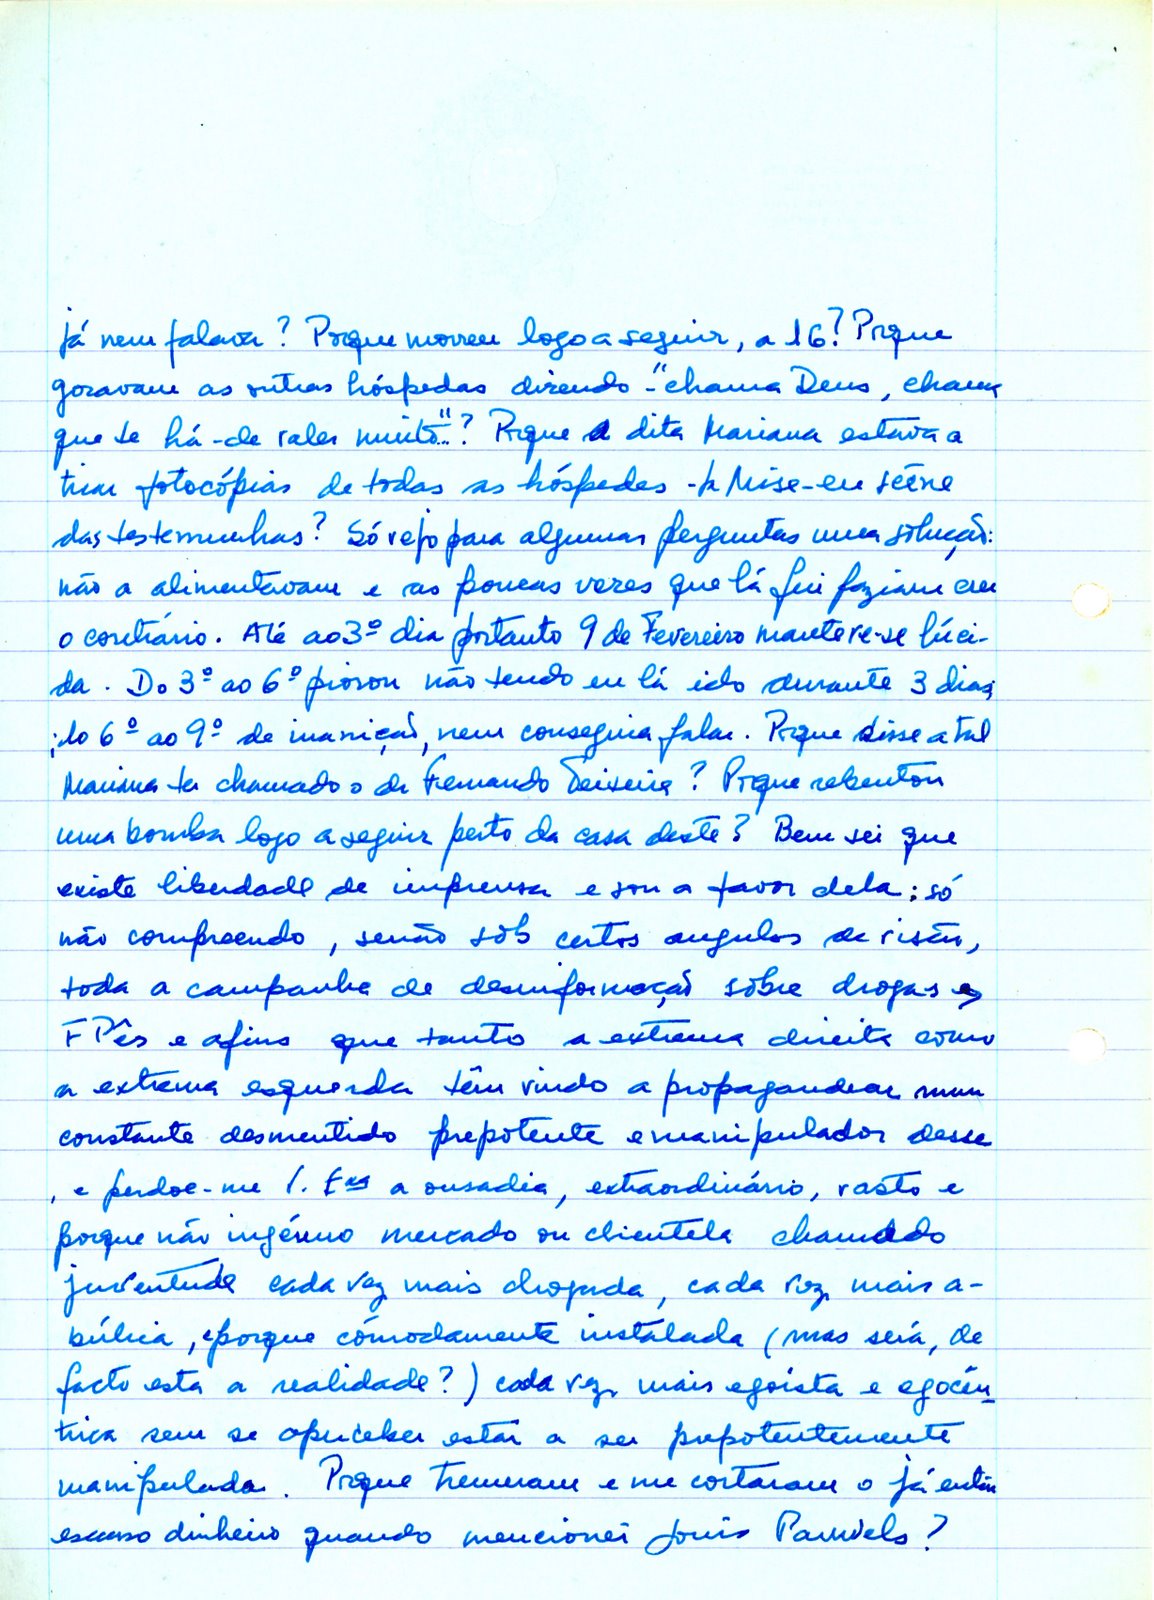 já nem falava? Porque morreu logo a seguir, a 16? Porque
gozavam as outras hóspedas dizendo - "chama Deus, chama
que te há-de valer muito..."? Porque a dita Mariana estava a
tirar fotocópias de todas as hóspedes - Mise-en scène
das testemunhas? Só vejo para algumas perguntas uma solução:
não a alimentavam e as poucas vezes que lá fui faziam crer
o contrário. Até ao 3º dia portanto 9 de Fevereiro manteve-se lúci-
da. Do 3º ao 6º piorou não tendo eu lá ido durante 3 dias;
do 6º ao 9º de inanição, nem conseguia falar. Porque disse a tal
Mariana ter chamado o dr Fernando Teixeira? Porque rebentou
uma bomba logo a seguir perto da casa deste? Bem sei que
existe liberdade de imprensa e sou a favor dela; só
não compreendo, senão sob certos angulos de visão,
toda a campanha de desinformação sôbre drogas e
FPês e afins que tanto a extrema direita como
a extrema esquerda têm vindo a propagandear num
constante desmentido prepotente e manipulador desse
, e perdoe-me V. Exa a ousadia, extraordinário, vasto e
porque não ingénuo mercado ou clientela chamado
juventude cada vez mais drogada, cada vez mais a-
búlica, e porque cómodamente instalada (mas será, de
facto esta a realidade?) cada vez mais egoísta e egocên-
trica sem se aperceber estar a ser prepotentemente
manipulada. Porque tremeram e me cortaram o já então
escasso dinheiro quando mencionei Louis Pauwels?